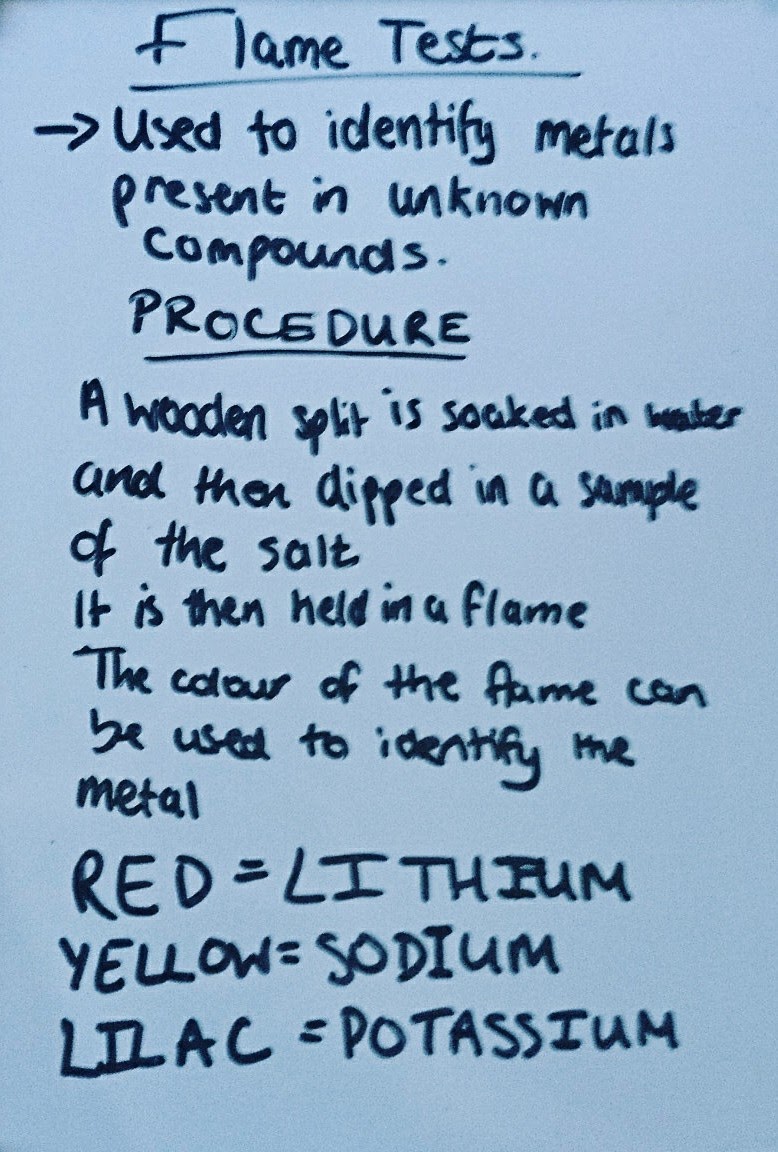 Flame Tests.
→ Used to identify metals
present in unknown
compounds.
PROCEDURE
A wooden split is soaked in water
and then dipped in a sample
of the salt
It is then held in a flame
The colour of the flame can
be used to identify the
metal
RED = LITHIUM
YELLOW = SODIUM
LILAC = POTASSIUM